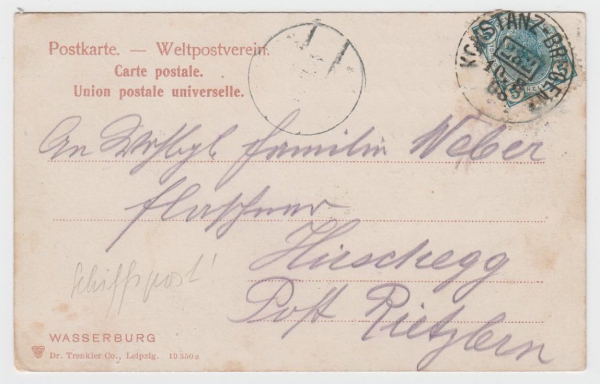 Postkarte. — Weltpostverein.
Carte postale.
Union postale universelle.
KONSTANZ-BREGENZ
An Familie Weber
Hirschegg
Schiffspost!
Post Riezlern
WASSERBURG
Dr. Trenkler Co., Leipzig. 10 350